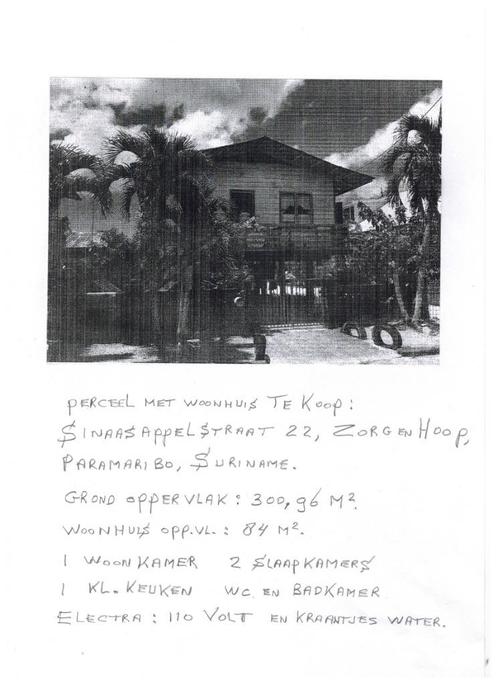 PERCEEL MET WOONHUIS TE KOOP:
SINAASAPPELSTRAAT 22, ZORG EN HOOP,
PARAMARIBO, SURINAME.
GROND OPPERVLAK: 300,96 M².
WOONHUIS OPP.VL.: 84 M².
1 WOONKAMER 2 SLAAPKAMERS
1 KL. KEUKEN WC EN BADKAMER
ELECTRA: 110 VOLT EN KRAANTJES WATER.